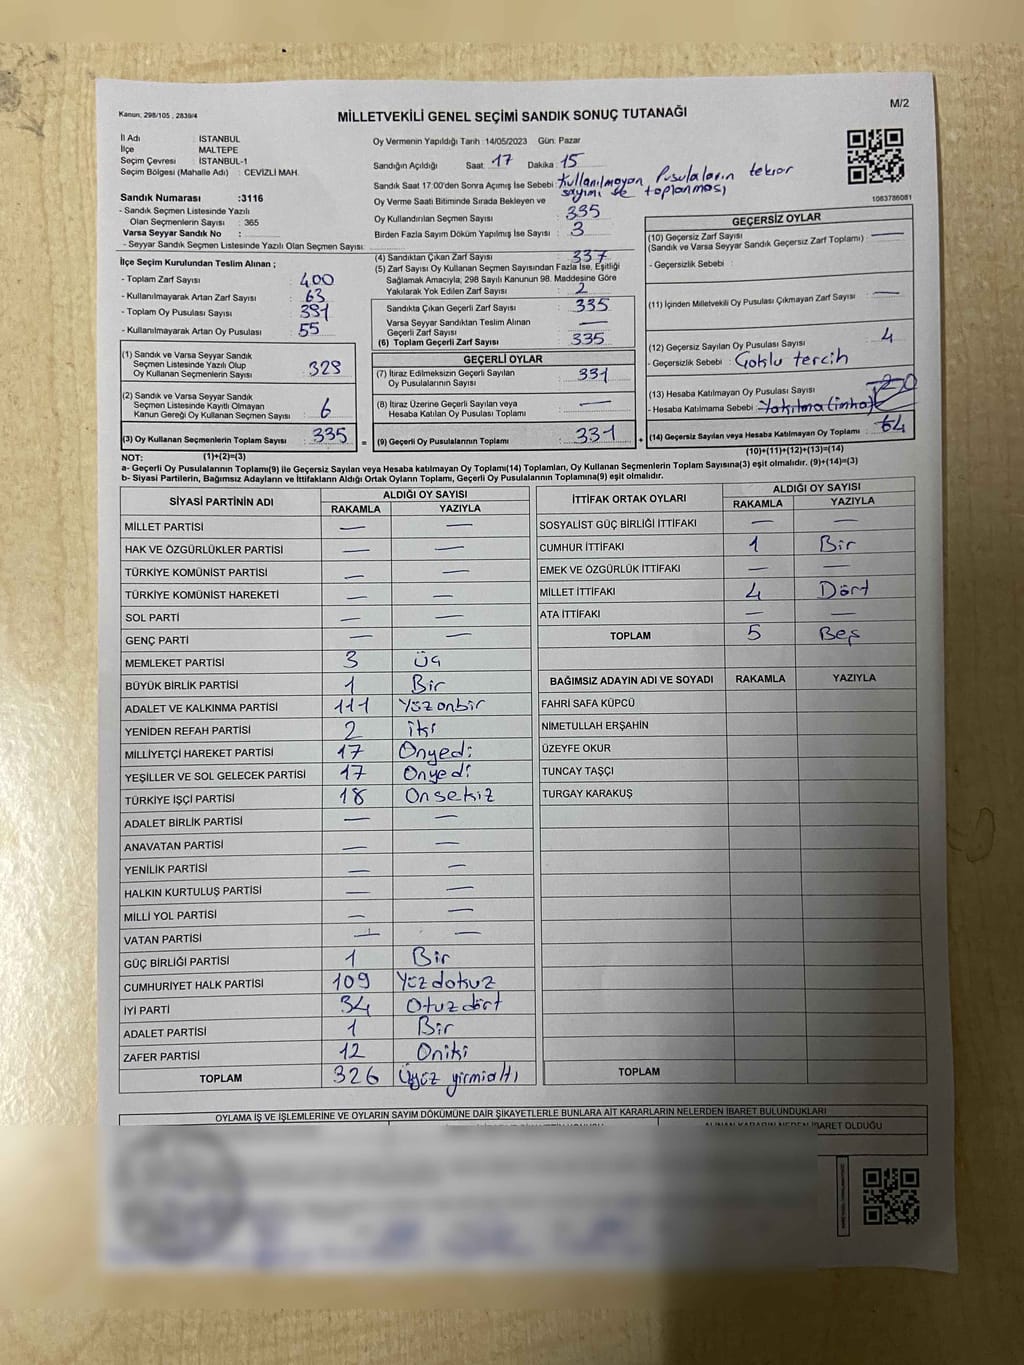 Kanun: 298/105 , 2839/4
MİLLETVEKİLİ GENEL SEÇİMİ SANDIK SONUÇ TUTANAĞI
M/2
İl Adı : İSTANBUL
İlçe : MALTEPE
Seçim Çevresi : İSTANBUL-1
Seçim Bölgesi (Mahalle Adı) : CEVİZLİ MAH.
Sandık Numarası :3116
- Sandık Seçmen Listesinde Yazılı
Olan Seçmenlerin Sayısı : 365
Varsa Seyyar Sandık No :
- Seyyar Sandık Seçmen Listesinde Yazılı Olan Seçmen Sayısı:
Oy Vermenin Yapıldığı Tarih :14/05/2023 Gün: Pazar
Sandığın Açıldığı Saat: 17 Dakika : 15
Sandık Saat 17:00'den Sonra Açımış İse Sebebi : Kullanılmayan Pusulaların tekrar
sayımı ve toplanması
Oy Verme Saati Bitiminde Sırada Bekleyen ve
Oy Kullandırılan Seçmen Sayısı : 335
Birden Fazla Sayım Döküm Yapılmış İse Sayısı : 3
1063786081
İlçe Seçim Kurulundan Teslim Alınan ;
- Toplam Zarf Sayısı : 400
- Kullanılmayarak Artan Zarf Sayısı : 63
- Toplam Oy Pusulası Sayısı : 391
- Kullanılmayarak Artan Oy Pusulası : 55
(1) Sandık ve Varsa Seyyar Sandık
Seçmen Listesinde Yazılı Olup
Oy Kullanan Seçmenlerin Sayısı : 329
(2) Sandık ve Varsa Seyyar Sandık
Seçmen Listesinde Kayıtlı Olmayan
Kanun Gereği Oy Kullanan Seçmen Sayısı : 6
(3) Oy Kullanan Seçmenlerin Toplam Sayısı : 335 =
(4) Sandıktan Çıkan Zarf Sayısı : 337
(5) Zarf Sayısı Oy Kullanan Seçmen Sayısından Fazla İse, Eşitliği
Sağlamak Amacıyla, 298 Sayılı Kanunun 98. Maddesine Göre
Yakılarak Yok Edilen Zarf Sayısı : 2
Sandıkta Çıkan Geçerli Zarf Sayısı : 335
Varsa Seyyar Sandıktan Teslim Alınan
Geçerli Zarf Sayısı : —
(6) Toplam Geçerli Zarf Sayısı : 335
GEÇERLİ OYLAR
(7) İtiraz Edilmeksizin Geçerli Sayılan
Oy Pusulalarının Sayısı : 331
(8) İtiraz Üzerine Geçerli Sayılan veya
Hesaba Katılan Oy Pusulası Toplamı : —
(9) Geçerli Oy Pusulalarının Toplamı : 331 +
GEÇERSİZ OYLAR
(10) Geçersiz Zarf Sayısı : —
(Sandık ve Varsa Seyyar Sandık Geçersiz Zarf Toplamı)
- Geçersizlik Sebebi :
(11) İçinden Milletvekili Oy Pusulası Çıkmayan Zarf Sayısı : —
(12) Geçersiz Sayılan Oy Pusulası Sayısı : 4
- Geçersizlik Sebebi : Çoklu tercih
(13) Hesaba Katılmayan Oy Pusulası Sayısı
- Hesaba Katılmama Sebebi : Yakılma (imha)
(14) Geçersiz Sayılan veya Hesaba Katılmayan Oy Toplamı :
NOT: (1)+(2)=(3) (10)+(11)+(12)+(13)=(14)
a- Geçerli Oy Pusulalarının Toplamı(9) ile Geçersiz Sayılan veya Hesaba katılmayan Oy Toplamı(14) Toplamları, Oy Kullanan Seçmenlerin Toplam Sayısına(3) eşit olmalıdır. (9)+(14)=(3)
b- Siyasi Partilerin, Bağımsız Adayların ve İttifakların Aldığı Ortak Oyların Toplamı, Geçerli Oy Pusulalarının Toplamına(9) eşit olmalıdır.
SİYASİ PARTİNİN ADI ALDIĞI OY SAYISI
RAKAMLA YAZIYLA
MİLLET PARTİSİ — —
HAK VE ÖZGÜRLÜKLER PARTİSİ — —
TÜRKİYE KOMÜNİST PARTİSİ — —
TÜRKİYE KOMÜNİST HAREKETİ — —
SOL PARTİ — —
GENÇ PARTİ — —
MEMLEKET PARTİSİ 3 Üç
BÜYÜK BİRLİK PARTİSİ 1 Bir
ADALET VE KALKINMA PARTİSİ 111 Yüzonbir
YENİDEN REFAH PARTİSİ 2 iki
MİLLİYETÇİ HAREKET PARTİSİ 17 Onyedi
YEŞİLLER VE SOL GELECEK PARTİSİ 17 Onyedi
TÜRKİYE İŞÇİ PARTİSİ 18 Onsekiz
ADALET BİRLİK PARTİSİ — —
ANAVATAN PARTİSİ — —
YENİLİK PARTİSİ — —
HALKIN KURTULUŞ PARTİSİ — —
MİLLİ YOL PARTİSİ — —
VATAN PARTİSİ — —
GÜÇ BİRLİĞİ PARTİSİ 1 Bir
CUMHURİYET HALK PARTİSİ 109 Yüzdokuz
İYİ PARTİ 34 Otuzdört
ADALET PARTİSİ 1 Bir
ZAFER PARTİSİ 12 Oniki
TOPLAM 326 Üçyüz yirmialtı
İTTİFAK ORTAK OYLARI ALDIĞI OY SAYISI
RAKAMLA YAZIYLA
SOSYALİST GÜÇ BİRLİĞİ İTTİFAKI — —
CUMHUR İTTİFAKI 1 Bir
EMEK VE ÖZGÜRLÜK İTTİFAKI — —
MİLLET İTTİFAKI 4 Dört
ATA İTTİFAKI — —
TOPLAM 5 Beş
BAĞIMSIZ ADAYIN ADI VE SOYADI RAKAMLA YAZIYLA
FAHRİ SAFA KÜPCÜ
NİMETULLAH ERŞAHİN
ÜZEYFE OKUR
TUNCAY TAŞÇI
TURGAY KARAKUŞ
TOPLAM
OYLAMA İŞ VE İŞLEMLERİNE VE OYLARIN SAYIM DÖKÜMÜNE DAİR ŞİKAYETLERLE BUNLARA AİT KARARLARIN NELERDEN İBARET BULUNDUKLARI
ALINAN KARARIN NEDEN İBARET OLDUĞU